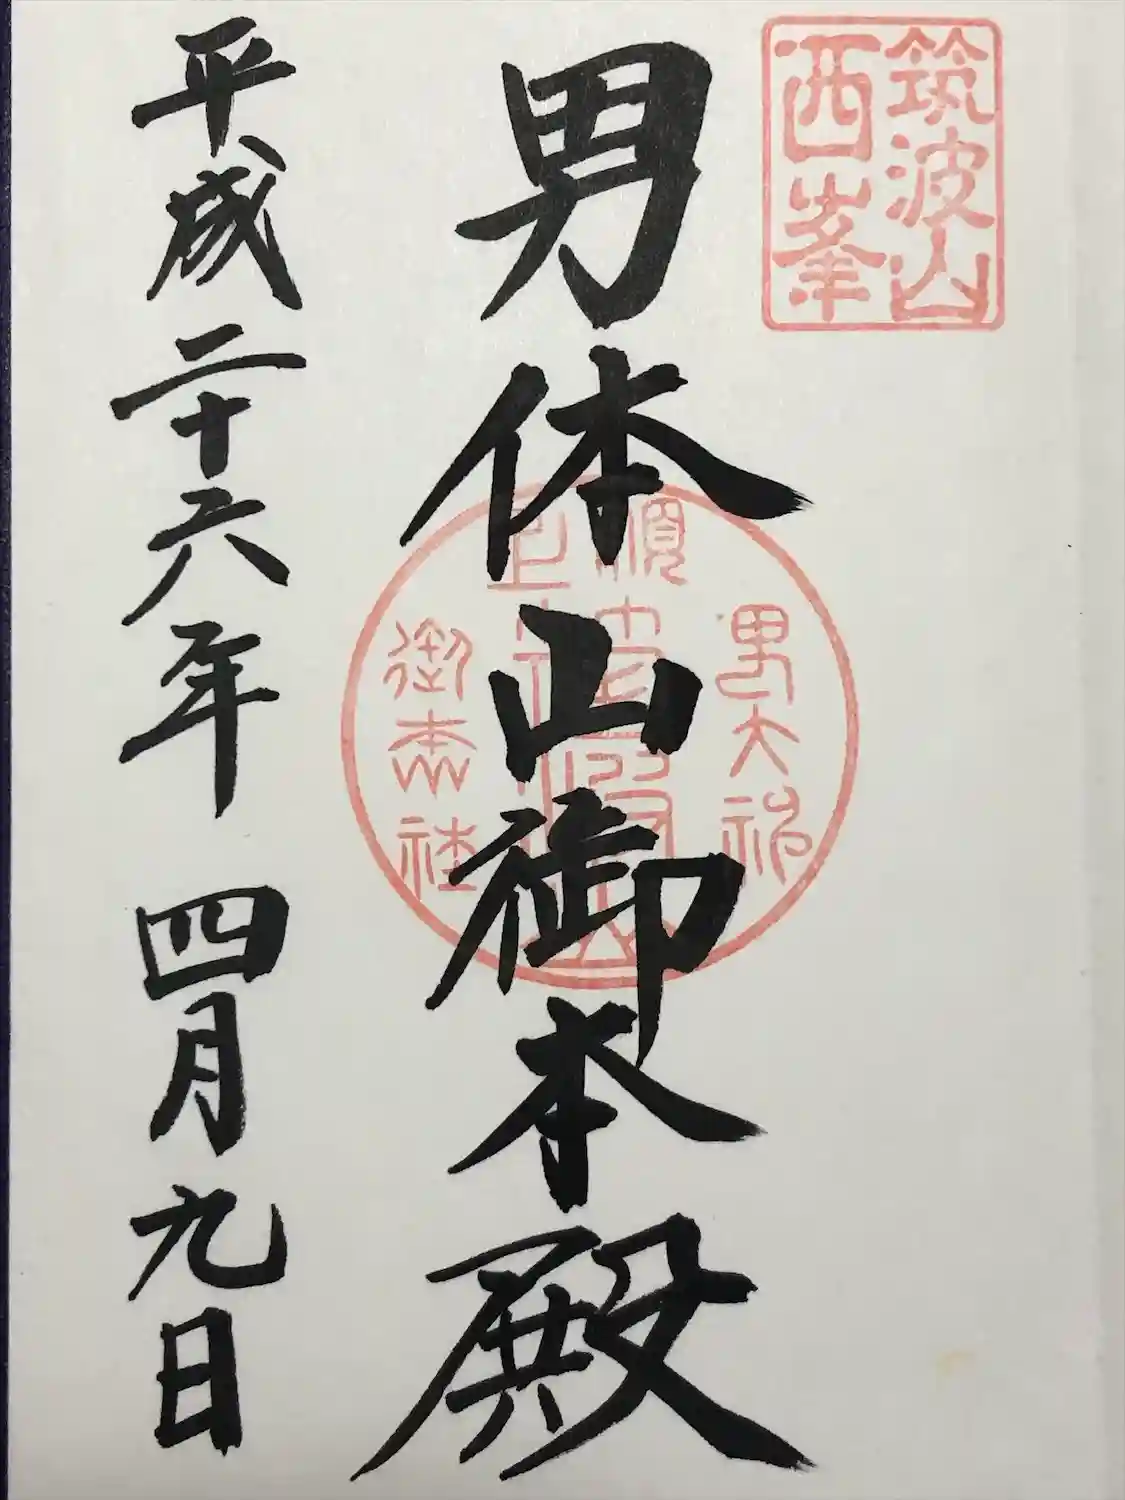 筑波山
西峯
男体山御本殿
男大神
御本社
平成二十六年 四月九日